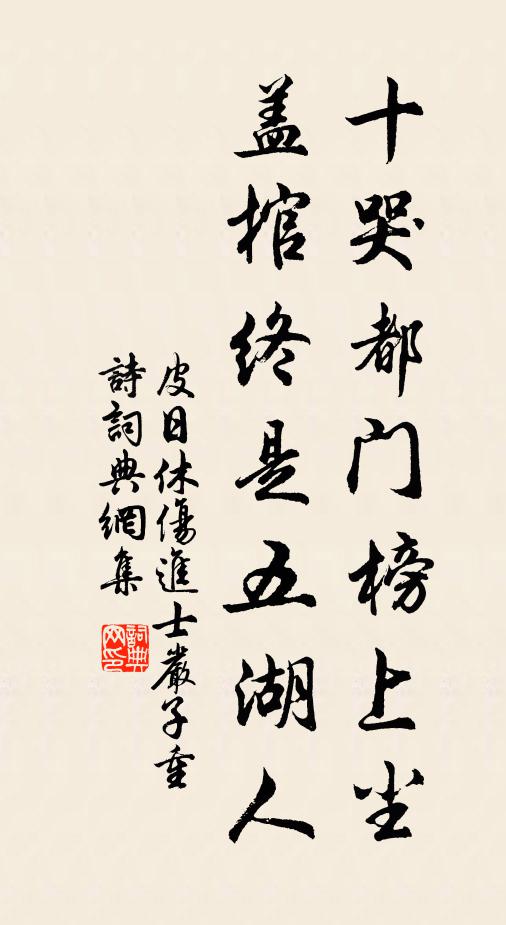 十哭都门榜上尘
盖棺終是五湖人
皮日休傷進士嚴子重
詩詞典網集
詞典
网印